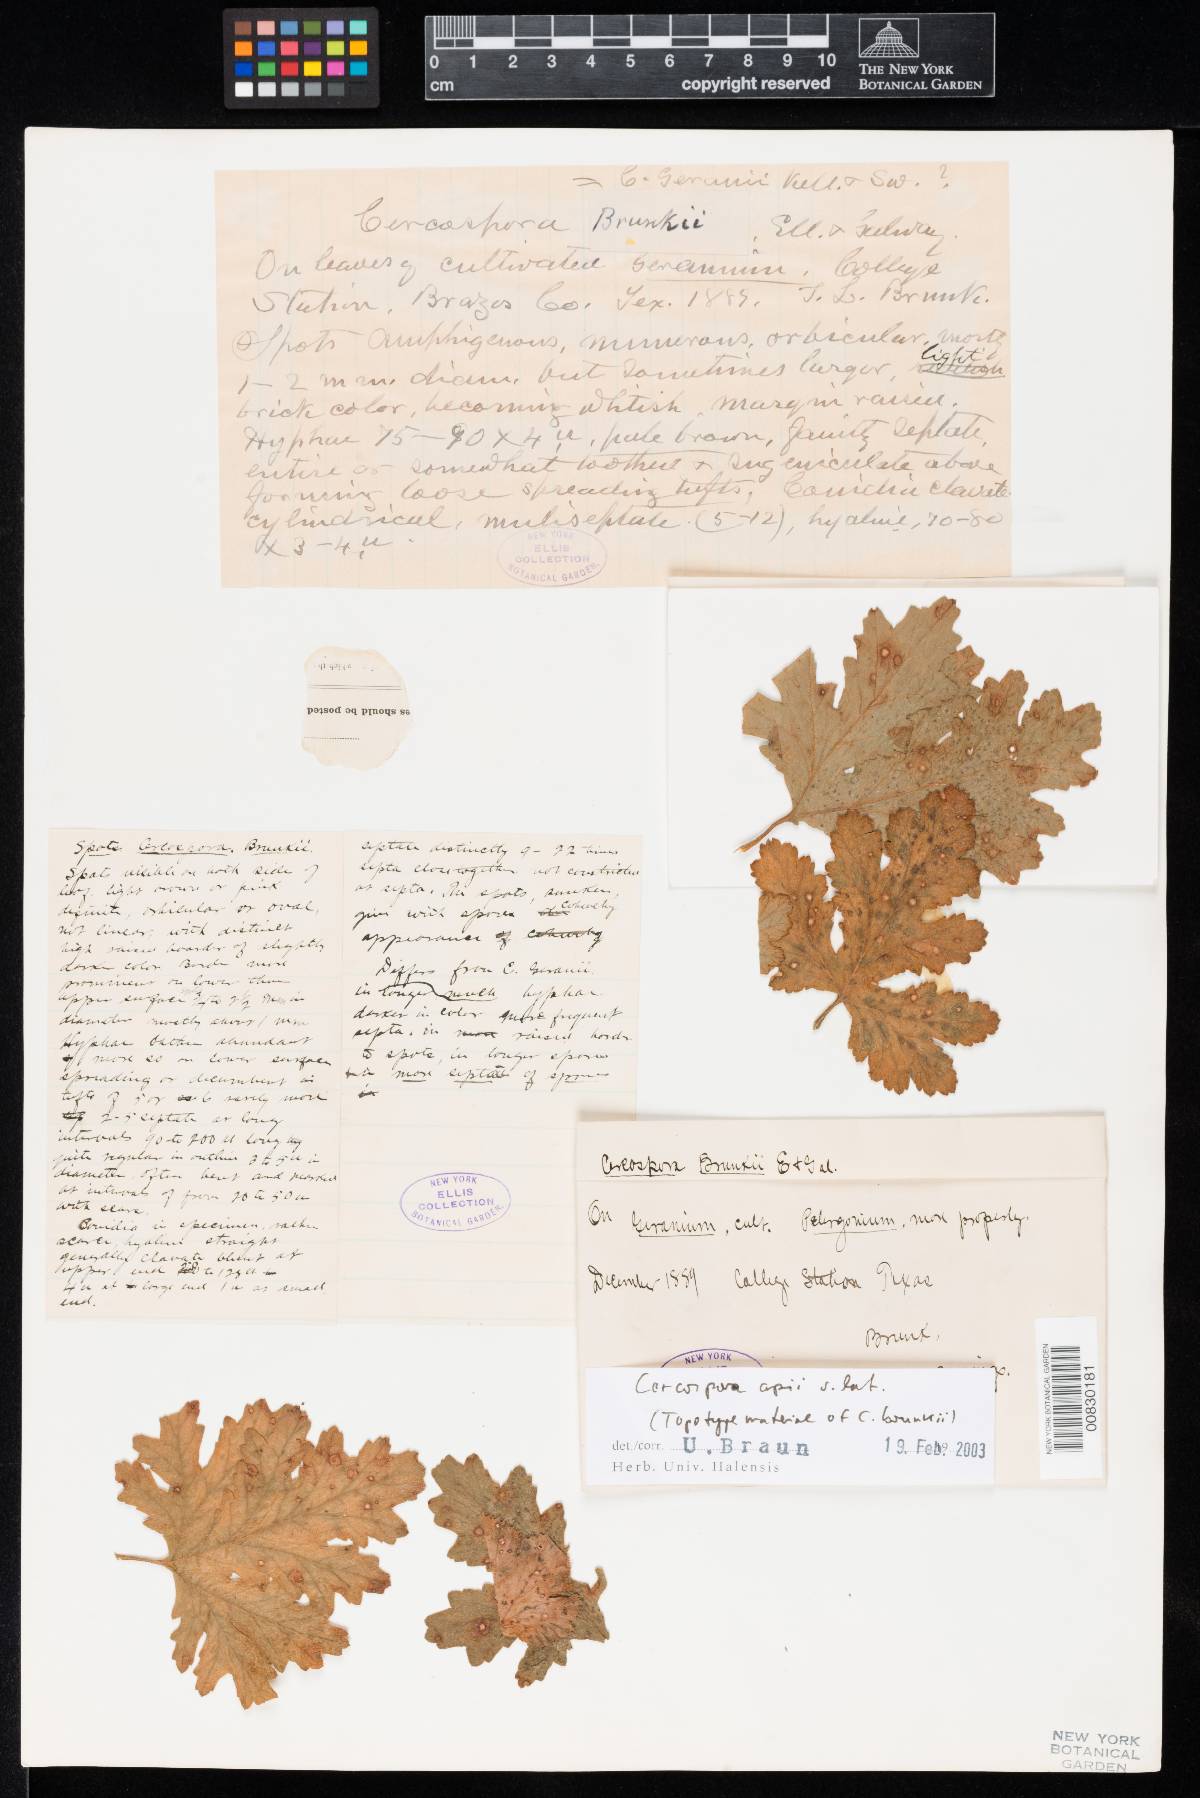 0 1 2 3 4 5 6 7 8 9 10
cm
copyright reserved
THE NEW YORK
BOTANICAL GARDEN
= C. Geranii Kell. & Sw. ?
Cercospora Brunkii, Ell. & Galway.
On leaves of cultivated Geranium. College
Station, Brazos Co. Tex. 1889. T. L. Brunk.
Spots amphigenous, numerous, orbicular, mostly
1-2 mm. diam. but sometimes larger, light
brick color, becoming whitish, margin raised.
Hyphae 75-90 x 4 µ, pale brown, faintly septate,
entire or somewhat toothed & subgeniculate above
forming loose spreading tufts. Conidia clavate-
cylindrical, multiseptate (5-12), hyaline, 70-80
x 3-4 µ.
NEW YORK
ELLIS
COLLECTION
BOTANICAL GARDEN.
es should be posted
Spots Cercospora Brunkii.
Spots visible on both side of
leaf, light brown or pink
definite, orbicular or oval,
not linear; with distinct
high raised boarder of slightly
darker color. Border more
prominent on lower than
upper surface to 2½ mm in
diameter mostly about 1 mm
Hyphae rather abundant
more so on lower surface
spreading or decumbent in
tufts of 5 or 6 rarely more
2-5 septate at long
intervals 90 to 200 µ long
quite regular in outline 3 to 5 µ in
diameter, often bent and marked
at intervals of from 20 to 50 µ
with scars.
Conidia in specimen, rather
scarce, hyaline straight
generally clavate blunt at
upper end to 125 µ
4 µ at large end 1 µ at small
end.
septate distinctly 9-22 times
septa close together not constricted
at septa. The spots, sunken,
give with spores cobwebby
appearance of cobwebby
Differs from C. Geranii
in longer much hyphae
darker in color more frequent
septa. in more raised border
to spots, in longer spores
in more septate of spores
in
NEW YORK
ELLIS
COLLECTION
BOTANICAL GARDEN.
Cercospora Brunkii E & Gal.
On Geranium, cult. Pelargonium, more properly.
December 1889 College Station Texas
Brunk.
NEW YORK
Cercospora apii s. lat.
(Topotype material of C. brunkii)
det./corr. U. Braun 19. Feb. 2003
Herb. Univ. Halensis
NEW YORK BOTANICAL GARDEN
00830181
NEW YORK
BOTANICAL
GARDEN